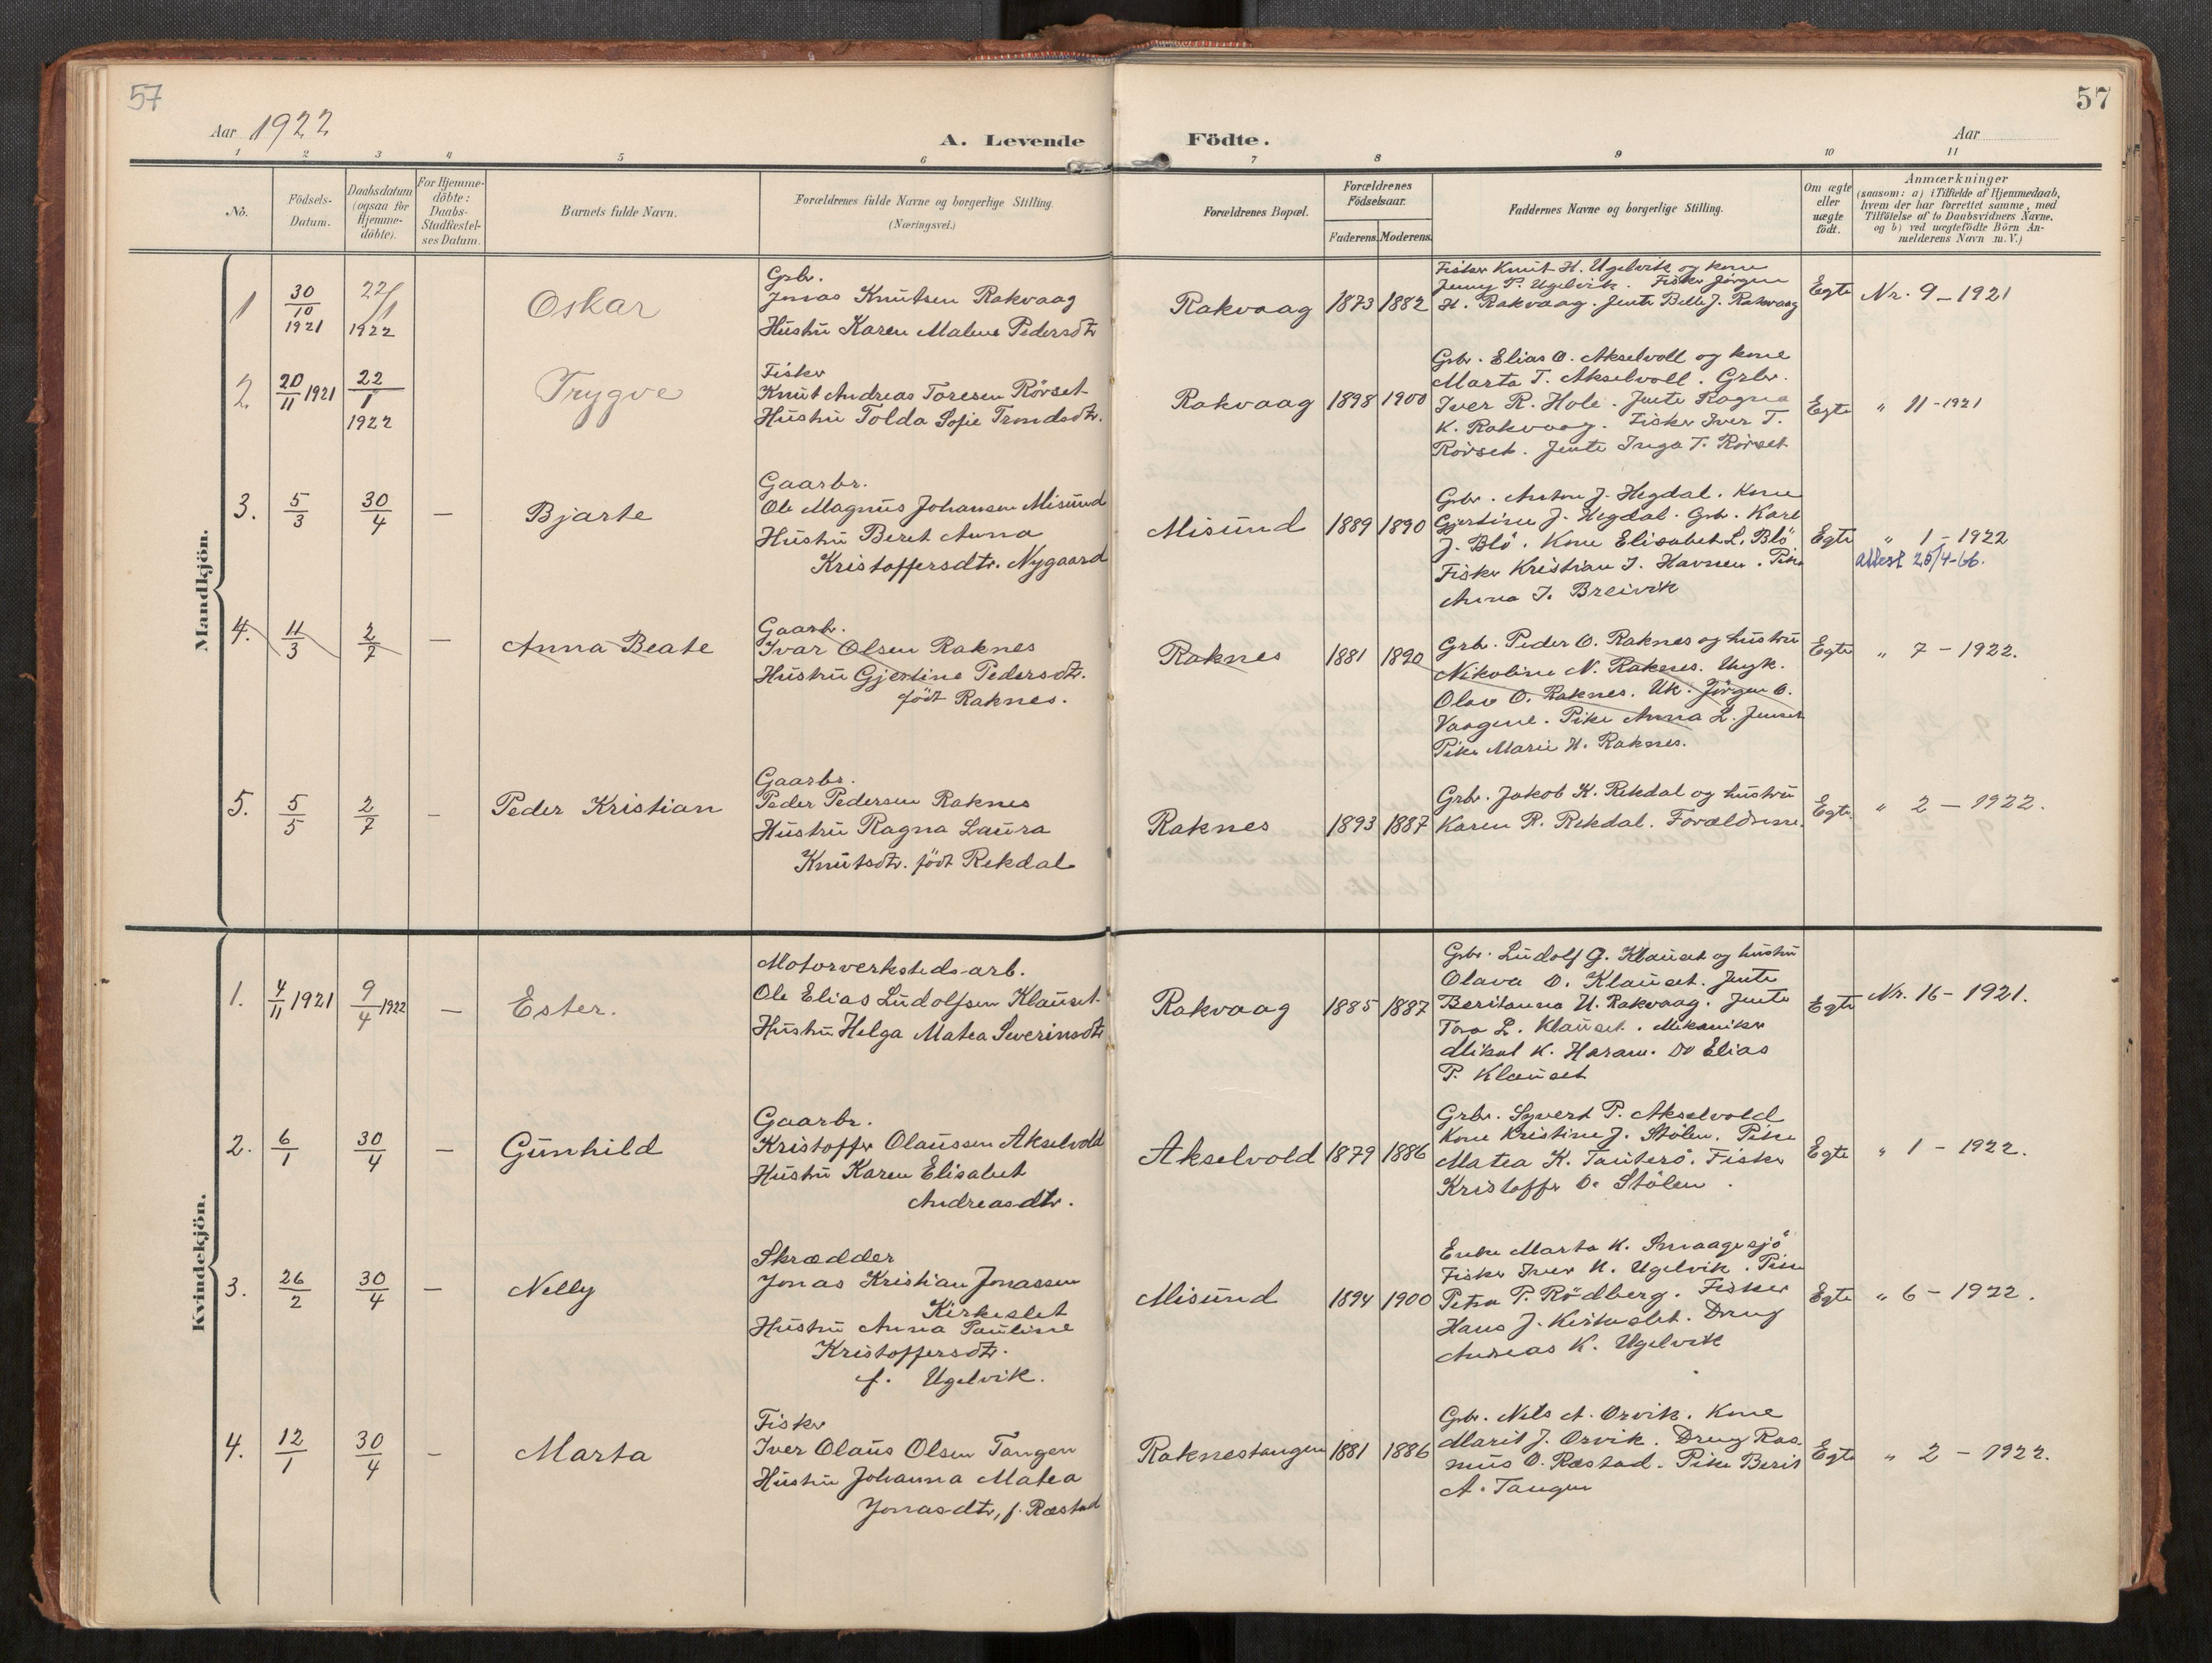 57
57
Aar 1922
A. Levende Födte.
Aar
1 2 3 4 5 6 7 8 9 10 11
No.
Födsels-
Datum.
Daabsdatum
(ogsaa for
Hjemme-
döbte).
For Hjemme-
döbte:
Daabs-
Stadfæstel-
ses Datum.
Barnets fulde Navn.
Forældrenes fulde Navne og borgerlige Stilling.
(Næringsvei.)
Forældrenes Bopæl.
Forældrenes
Födselsaar.
Faderens. Moderens.
Faddernes Navne og borgerlige Stilling.
Om ægte
eller
uægte
födt.
Anmærkninger
(saasom: a) i Tilfælde af Hjemmedaab,
hvem der har forrettet samme, med
Tilföielse af to Daabsvidners Navne,
og b) ved uægtefödte Börn An-
melderens Navn m. V.)
Mandkjön.
1
30/10
1921
22/1
1922
Oskar
Grbr.
Jonas Knutsen Rakvaag
Hustru Karen Malene Pedersdtr
Rakvaag 1873 1882
Fisker Knut H. Ugelvik og kone
Jenny P. Ugelvik. Fisker Jørgen
H. Rakvaag. Jente Belle J. Rakvaag
Egte
Nr. 9 - 1921
2
20/11 1921
22/1
1922
Trygve
Fisker
Knut Andreas Toresen Rörset
Hustru Tolda Sofie Trondsdtr.
Rakvaag 1898 1900
Grbr. Elias O. Akselvoll og kone
Marta T. Akselvoll. Grbr.
Iver R. Hole. Jente Ragna
K. Rakvaag. Fisker Iver T.
Rörset. Jente Inga T. Rörset
Egte
" 11 - 1921
3.
5/3
30/4
—
Bjarte
Gaarbr.
Ole Magnus Johansen Misund
Hustru Beret Anna
Kristoffersdtr. Nygaard
Misund 1889 1890
Grbr. Anton J. Hegdal. Kone
Gjertine J. Hegdal. Grb. Karl
J. Blö. Kone Elisabet L. Blö
Fisker Kristian J. Havnen. Pike
Anna J. Breivik
Egte
" 1 - 1922
attest 25/4-66.
4.
11/3
2/7
—
Anna Beate
Gaarb.
Ivar Olsen Raknes
Hustru Gjertine Pedersdtr.
födt Raknes.
Raknes 1881 1890
Grb. Peder O. Raknes og hustru
Nikoline N. Raknes. Ungk.
Olav O. Raknes. Uk. Jörgen O.
Vaagene. Pike Anna L. Jenset
Pike Marie H. Raknes.
Egte
" 7 - 1922.
5.
5/5
2/7
—
Peder Kristian
Gaarbr.
Peder Pedersen Raknes
Hustru Ragna Laura
Knutsdtr. födt Rekdal
Raknes 1893 1887
Grb. Jakob K. Rekdal og hustru
Karen R. Rekdal. Forældrene.
Egte.
" 2 — 1922.
Kvindekjön.
1.
4/11 1921
9/4 1922
—
Ester.
Motorverksteds-arb.
Ole Elias Ludolfsen Klauset
Hustru Helga Matea Severinsdtr
Rakvaag 1885 1887
Grb. Ludolf G. Klauset og hustru
Olava O. Klauset. Jente
Beritanna U. Rakvaag. Jente
Tora L. Klauset. Mekaniker
Mikal K. Haram. Do Elias
P. Klauset
Egte
Nr. 16 - 1921.
2.
6/1
30/4
—
Gunhild
Gaarbr.
Kristoffer Olaussen Akselvold
Hustru Karen Elisabet
Andreasdtr.
Akselvold 1879 1886
Grbr. Syvert P. Akselvold
Kone Kristine J. Stölen. Pike
Matea K. Tauterö. Fisker
Kristoffer O. Stölen.
Egte
" 1 - 1922.
3.
26/2
30/4
—
Nelly
Skrædder
Jonas Kristian Jonassen
Kirkeslet
Hustru Anna Pauline
Kristoffersdtr.
f. Ugelvik.
Misund 1894 1900
Enke Marta K. Smaagesjö
Fisker Iver K. Ugelvik. Pike
Petra P. Rödberg. Fisker
Hans J. Kirkeslet. Dreng
Andreas K. Ugelvik
Egte
" 6 - 1922.
4.
12/1
30/4
—
Marta
Fisker
Iver Olaus Olsen Tangen
Hustru Johanna Matea
Jonasdtr, f. Ræstad
Raknestangen 1881 1886
Grb. Nels A. Orvik. Kone
Marit J. Orvik. Dreng Ras-
mus O. Ræstad. Pike Berit
A. Tangen
Egte
" 2 - 1922.